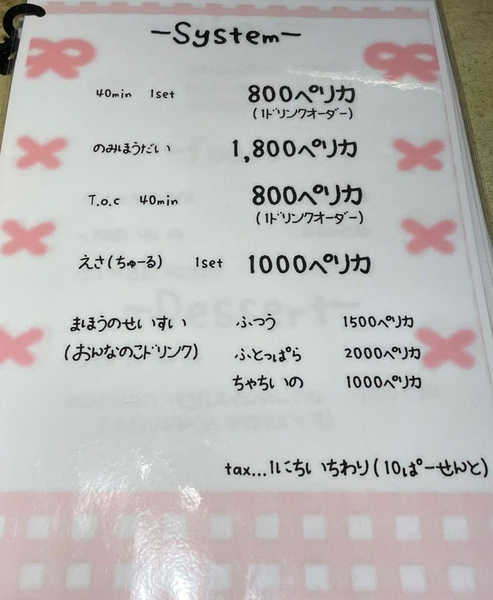 -System-
40min 1set 800ペリカ
(1ドリンクオーダー)
のみほうだい 1,800ペリカ
T.o.c 40min 800ペリカ
(1ドリンクオーダー)
えさ(ちゅーる) 1set 1000ペリカ
まほうのせいすい ふつう 1500ペリカ
(おんなのこドリンク) ふとっぱら 2000ペリカ
ちゃちいの 1000ペリカ
tax...1にちいちわり(10ぱーせんと)